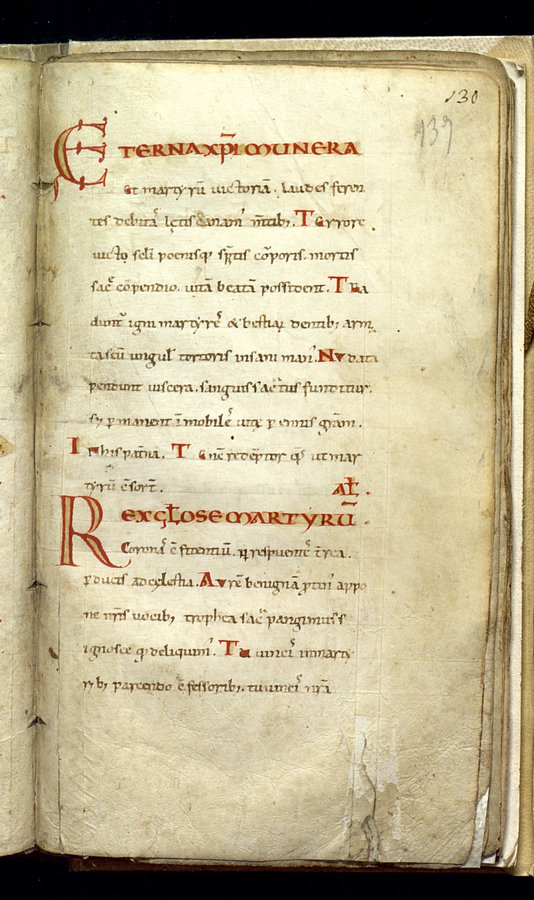 130
139
ETERNA XPI MUNERA
Et martyrũ uictoriã. laudes feren
tes debitas letis canam mtib; Terrore
uicto seli poenisq; sptis corporis. mortis
sac compendio. uitã beatã possident. Tra
dunt igni martyres & bestiar dentib; arm
ta seu ungul tortoris insani man. Nudata
pendunt uiscera. sanguis sacratus funditur.
s; permanent imobiles uite perennis gram.
In his patna. Te nc redeptor qs ut mar
tyrũ csort. AL.
REX GLOSE MARTYRŨ.
Corona cfitentiũ. q respuentes trea.
perducis ad celestia. Aurẽ benignã ptin appo
ne nris uocib; trophea sac pangimus
ignosce q deliqum. Tu uincis in marty
rib; parcendo cfessorib; tu uince nrã